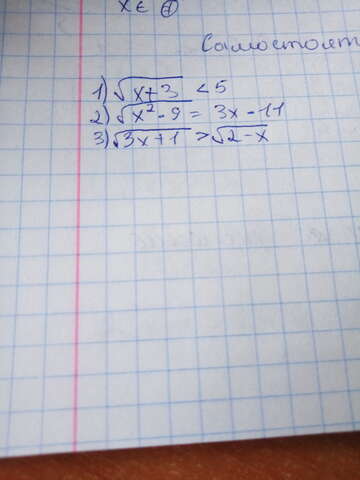 x ∈ ⊕
Самостоят
1) √(x+3) < 5
2) √(x² - 9) = 3x - 11
3) √(3x+1) > √(2-x)